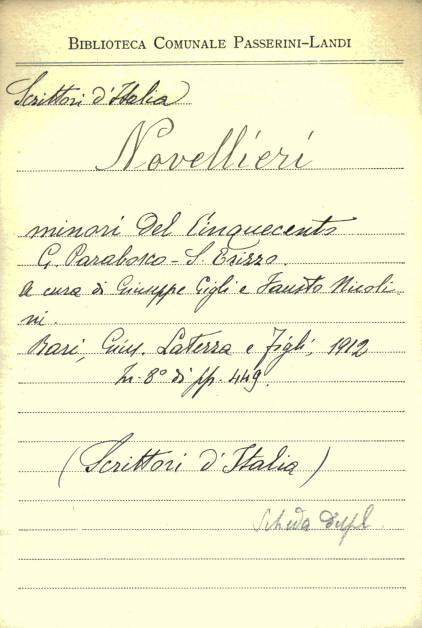 BIBLIOTECA COMUNALE PASSERINI-LANDI
Scrittori d'Italia
Novellieri
minori Del Cinquecento
G. Parabosco - S. Erizzo.
a cura di Giuseppe Gigli e Fausto Nicoli-
ni.
Bari, Gius. Laterza e Figli, 1912
In-8° di pp. 449.
(Scrittori d'Italia)
Scheda